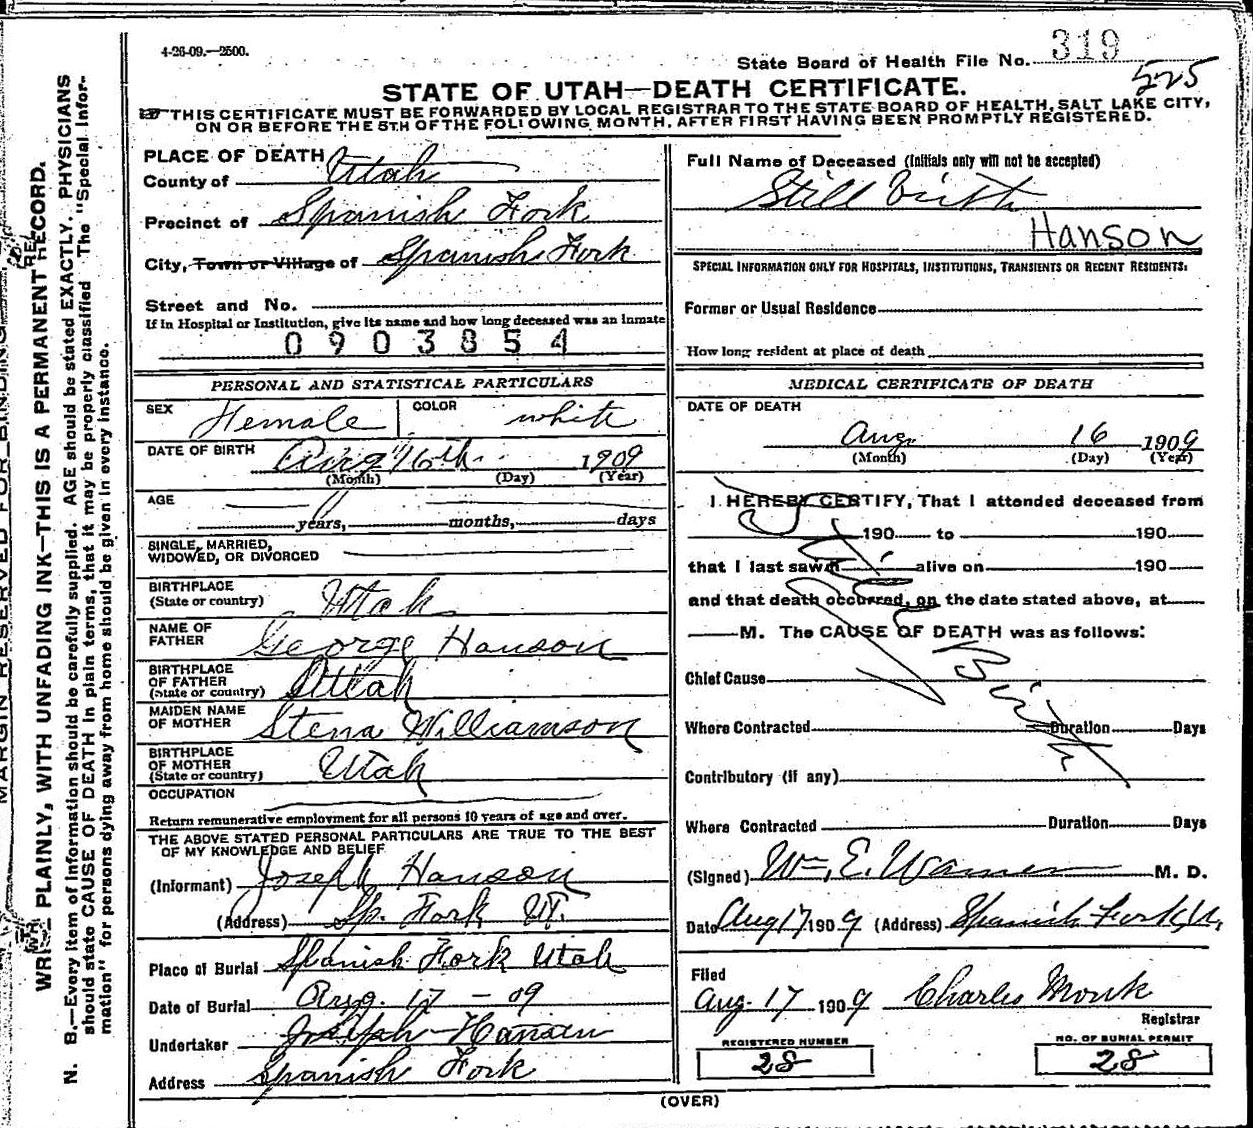 4-26-09.—2500.
State Board of Health File No. 319
525
STATE OF UTAH—DEATH CERTIFICATE.
THIS CERTIFICATE MUST BE FORWARDED BY LOCAL REGISTRAR TO THE STATE BOARD OF HEALTH, SALT LAKE CITY,
ON OR BEFORE THE 5TH OF THE FOLLOWING MONTH, AFTER FIRST HAVING BEEN PROMPTLY REGISTERED.
PLACE OF DEATH
County of Utah
Precinct of Spanish Fork
City, Town or Village of Spanish Fork
Street and No.
If in Hospital or Institution, give its name and how long deceased was an inmate
0903854
PERSONAL AND STATISTICAL PARTICULARS
SEX Female COLOR white
DATE OF BIRTH Aug 16th 1909
(Month) (Day) (Year)
AGE
years, months, days
SINGLE, MARRIED,
WIDOWED, OR DIVORCED
BIRTHPLACE
(State or country) Utah
NAME OF
FATHER George Hanson
BIRTHPLACE
OF FATHER
(State or country) Utah
MAIDEN NAME
OF MOTHER Stena Williamson
BIRTHPLACE
OF MOTHER
(State or country) Utah
OCCUPATION
Return remunerative employment for all persons 10 years of age and over.
THE ABOVE STATED PERSONAL PARTICULARS ARE TRUE TO THE BEST
OF MY KNOWLEDGE AND BELIEF
(Informant) Joseph Hanson
(Address) Sp. Fork UT.
Place of Burial Spanish Fork Utah
Date of Burial Aug. 17 - 09
Undertaker Joseph Hansen
Address Spanish Fork
Full Name of Deceased (Initials only will not be accepted)
Still Birth
Hanson
SPECIAL INFORMATION ONLY FOR HOSPITALS, INSTITUTIONS, TRANSIENTS OR RECENT RESIDENTS:
Former or Usual Residence
How long resident at place of death
MEDICAL CERTIFICATE OF DEATH
DATE OF DEATH
Aug 16 1909
(Month) (Day) (Year)
I HEREBY CERTIFY, That I attended deceased from
190 to 190
that I last saw alive on 190
and that death occurred, on the date stated above, at
M. The CAUSE OF DEATH was as follows:
Still Birth
Chief Cause
Where Contracted Duration Days
Contributory (if any)
Where Contracted Duration Days
(Signed) Wm. E. Warner M. D.
Date Aug 17 1909 (Address) Spanish Fork, U.
Filed
Aug. 17 1909 Charles Monk
Registrar
REGISTERED NUMBER
28
NO. OF BURIAL PERMIT
28
(OVER)
MARGIN RESERVED FOR BINDING
WRITE PLAINLY, WITH UNFADING INK—THIS IS A PERMANENT RECORD.
N. B.—Every item of information should be carefully supplied. AGE should be stated EXACTLY. PHYSICIANS
should state CAUSE OF DEATH in plain terms, that it may be properly classified. The "Special Infor-
mation" for persons dying away from home should be given in every instance.